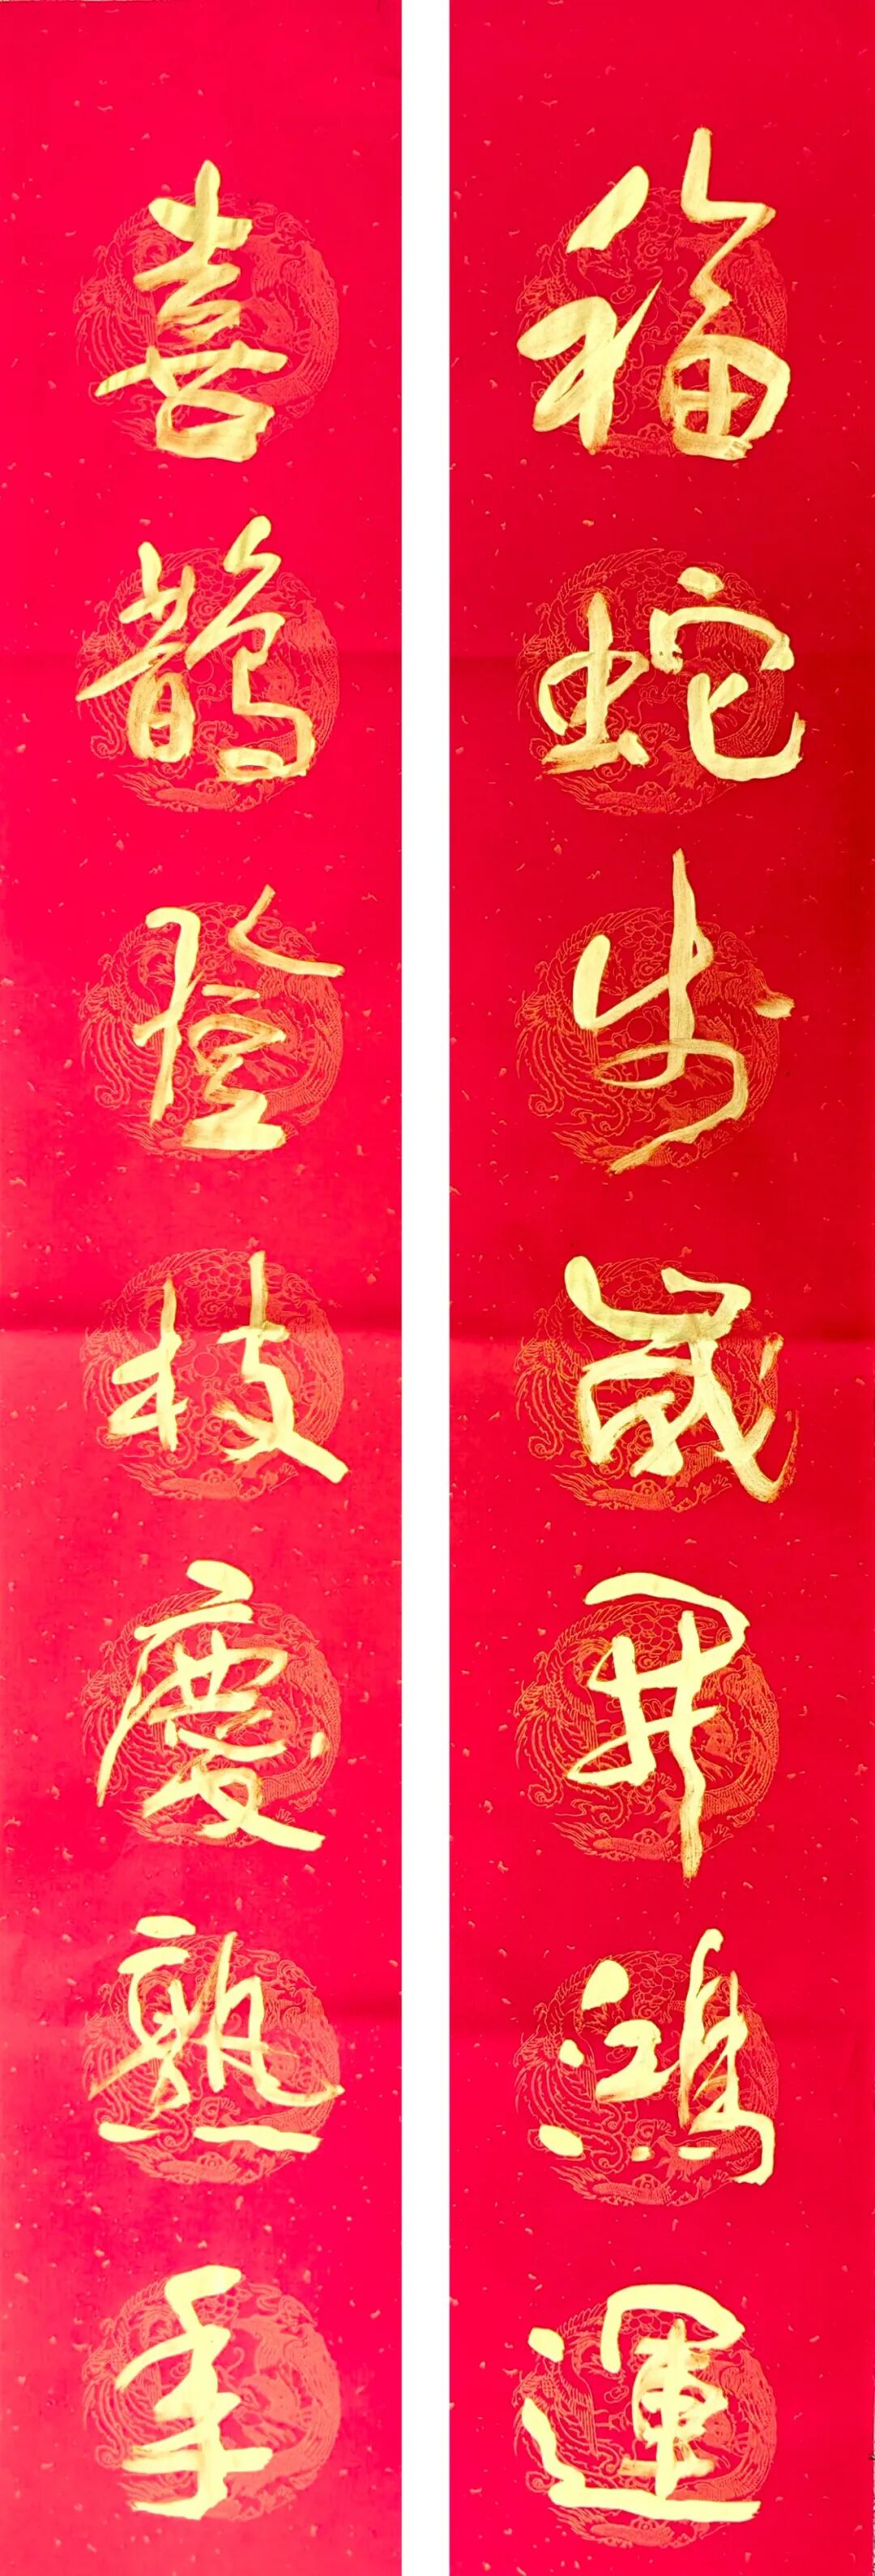 福蛇步歲開鴻運
喜鵲登枝慶熟年